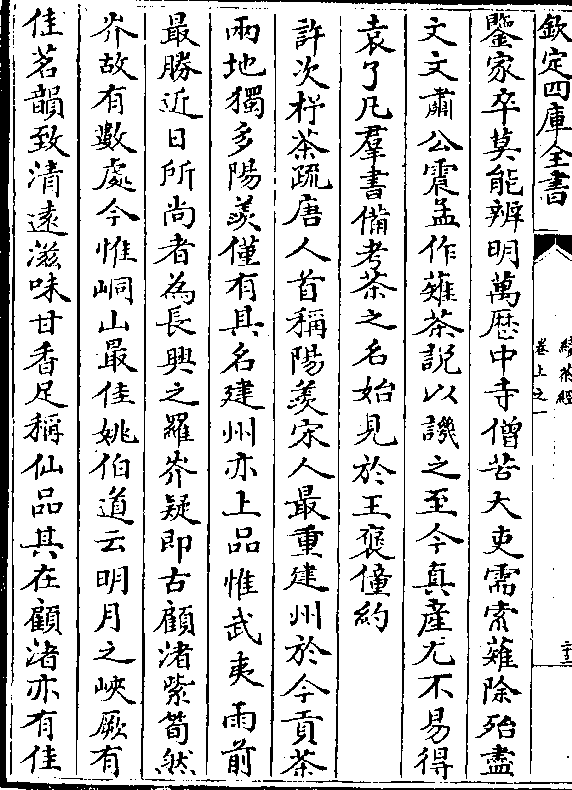 欽定四庫全書
續茶經
卷上之一
二十三
鑒家卒莫能辨明萬歴中寺僧苦大吏需索薙除殆盡
文文肅公震孟作薙茶説以譏之至今真産尤不易得
袁了凡羣書備考茶之名始見於王褒僮約
許次杼茶疏唐人首稱陽羨宋人最重建州於今貢茶
兩地獨多陽羨僅有其名建州亦上品惟武夷雨前
最勝近日所尚者為長興之羅岕疑即古顧渚紫筍然
岕故有數處今惟峒山最佳姚伯道云明月之峽厥有
佳茗韻致清遠滋味甘香足稱仙品其在顧渚亦有佳